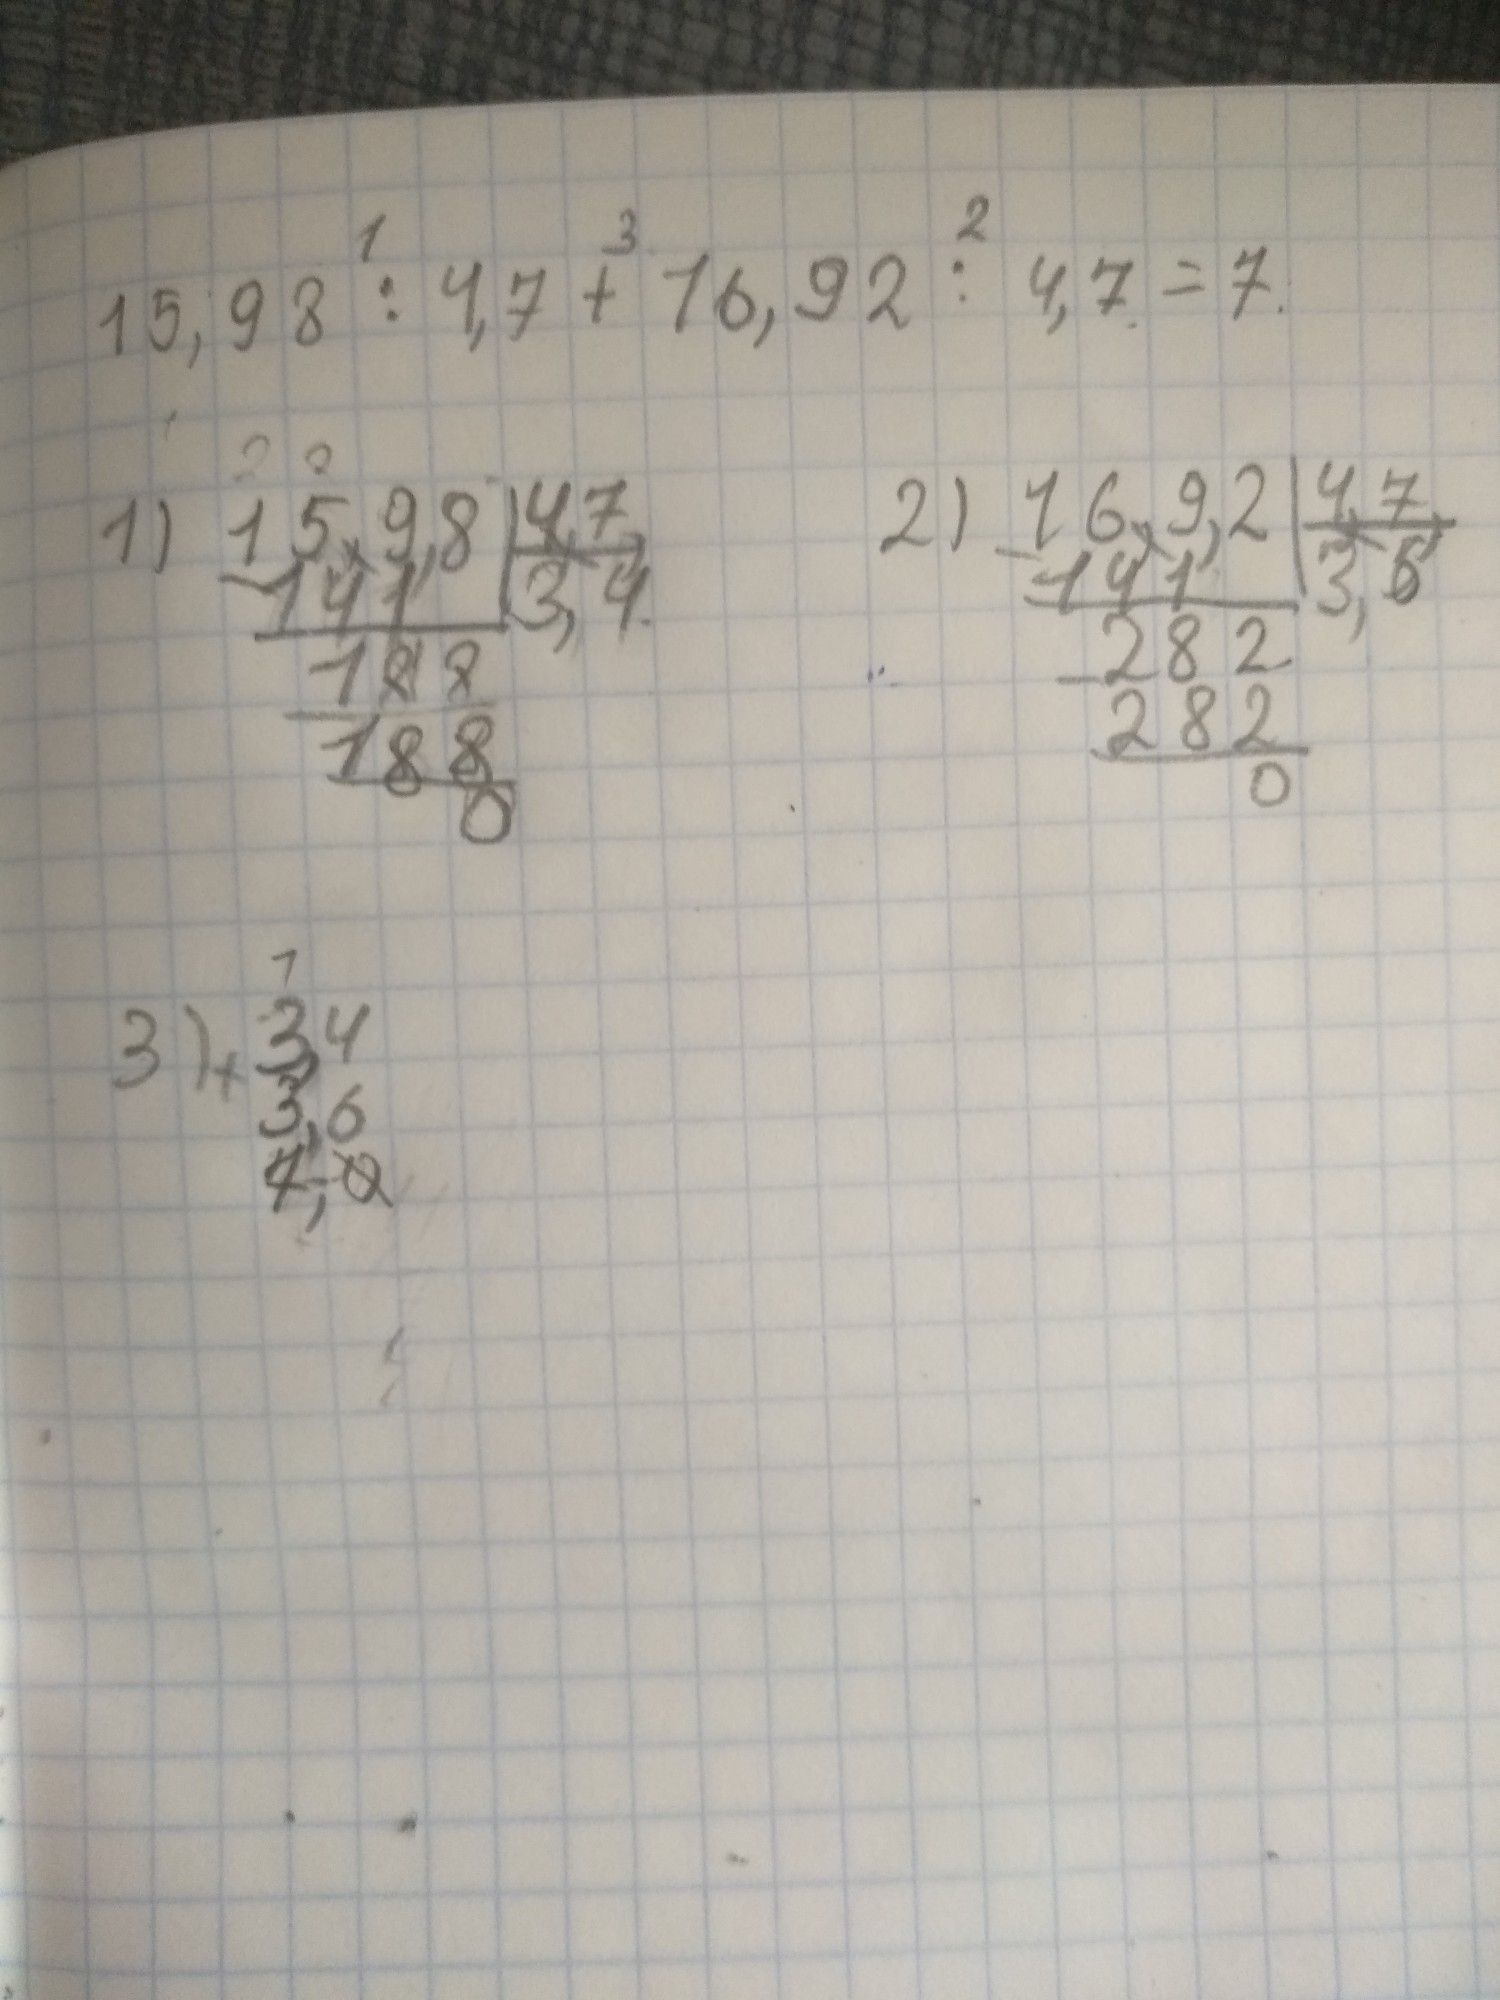 1 3 2
15,98 : 4,7 + 16,92 : 4,7 = 7.
2 2
1) 15,9,8 | 4,7,
- 141 | 3,4.
188
- 188
0
2) 16,9,2 | 4,7,
- 141 | 3,6
282
- 282
0
1
3) + 3,4
3,6
7,0